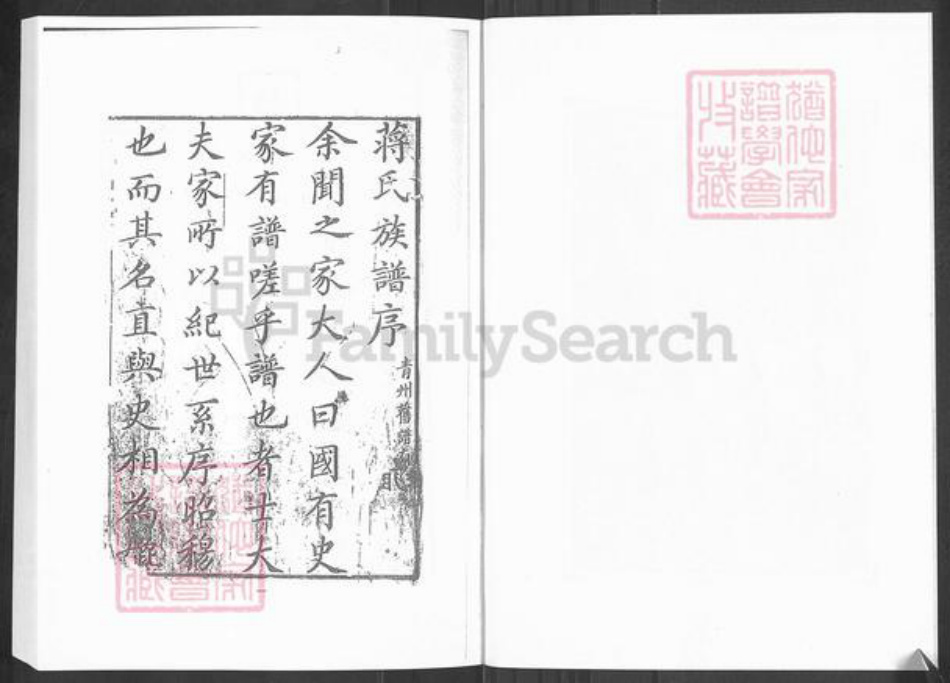 蔣氏族譜序
青州舊譜
余聞之家大人曰國有史
家有譜嗟乎譜也者士大
夫家所以紀世系序昭穆
也而其名直與史相為
猶他家
譜學會
收藏
FamilySearch